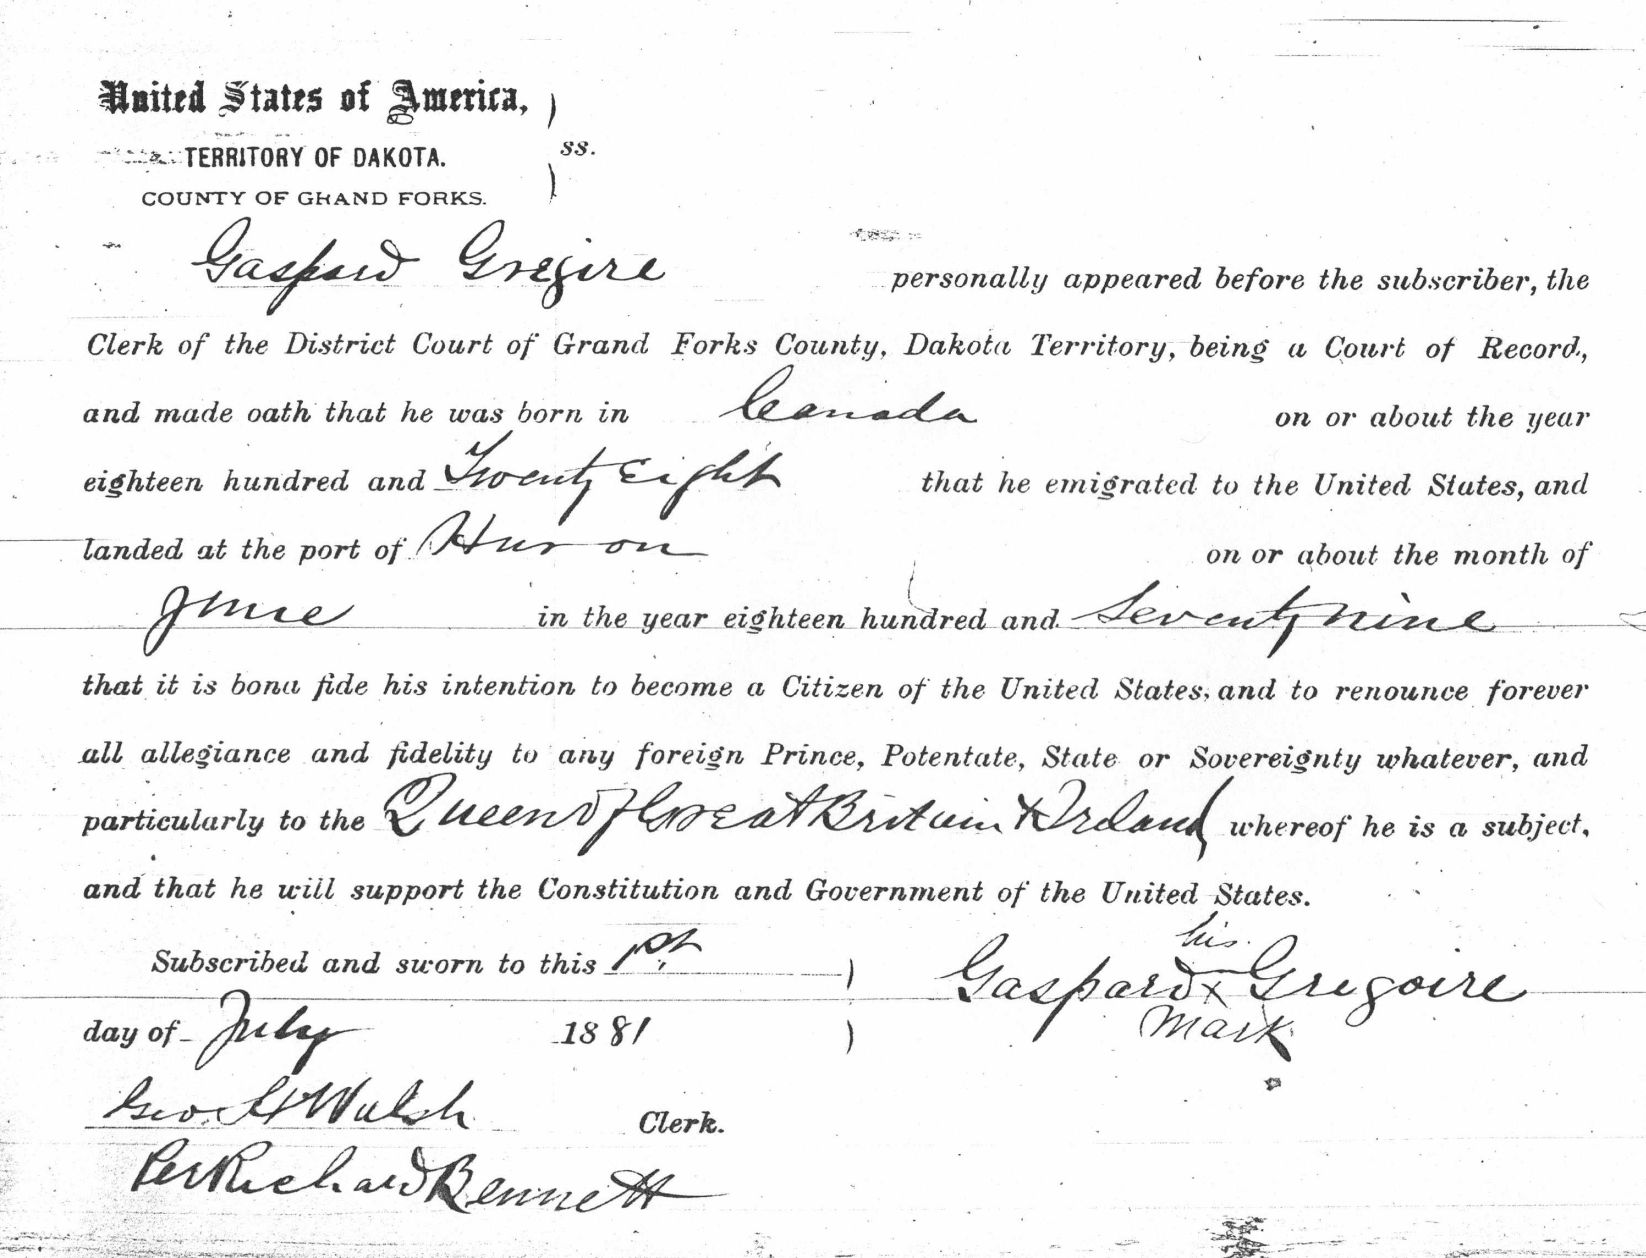 United States of America, )
TERRITORY OF DAKOTA. ss.
COUNTY OF GRAND FORKS. )
Gaspard Gregire personally appeared before the subscriber, the
Clerk of the District Court of Grand Forks County, Dakota Territory, being a Court of Record,
and made oath that he was born in Canada on or about the year
eighteen hundred and Twenty Eight that he emigrated to the United States, and
landed at the port of Huron on or about the month of
June in the year eighteen hundred and Seventy nine
that it is bona fide his intention to become a Citizen of the United States, and to renounce forever
all allegiance and fidelity to any foreign Prince, Potentate, State or Sovereignty whatever, and
particularly to the Queen of Great Britain & Ireland whereof he is a subject,
and that he will support the Constitution and Government of the United States.
his
Subscribed and sworn to this 1st ) Gaspard x Gregoire
mark
day of July 1881 )
Geo. H Walsh Clerk.
Per Richard Bennett